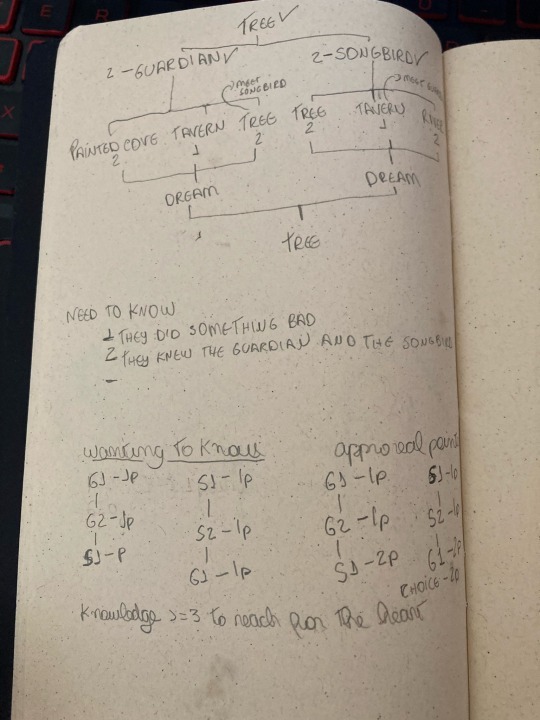 TREE ✓
2-GUARDIAN ✓ 2-SONGBIRD ✓
MEET SONGBIRD MEET
PAINTED COVE TAVERN TREE TREE TAVERN
2 1 2 2 1 2
DREAM DREAM
1
TREE
NEED TO KNOW
1 THEY DID SOMETHING BAD
2 THEY KNEW THE GUARDIAN AND THE SONGBIRD
-
wanting to know approval points
G1-1p S1-1p G1-1p S1-1p
G2-1p S2-1p G2-1p S2-1p
S1-p G1-1p S1-2p G1-2p
CHOICE-2p
Knowledge >=3 to reach for the heart